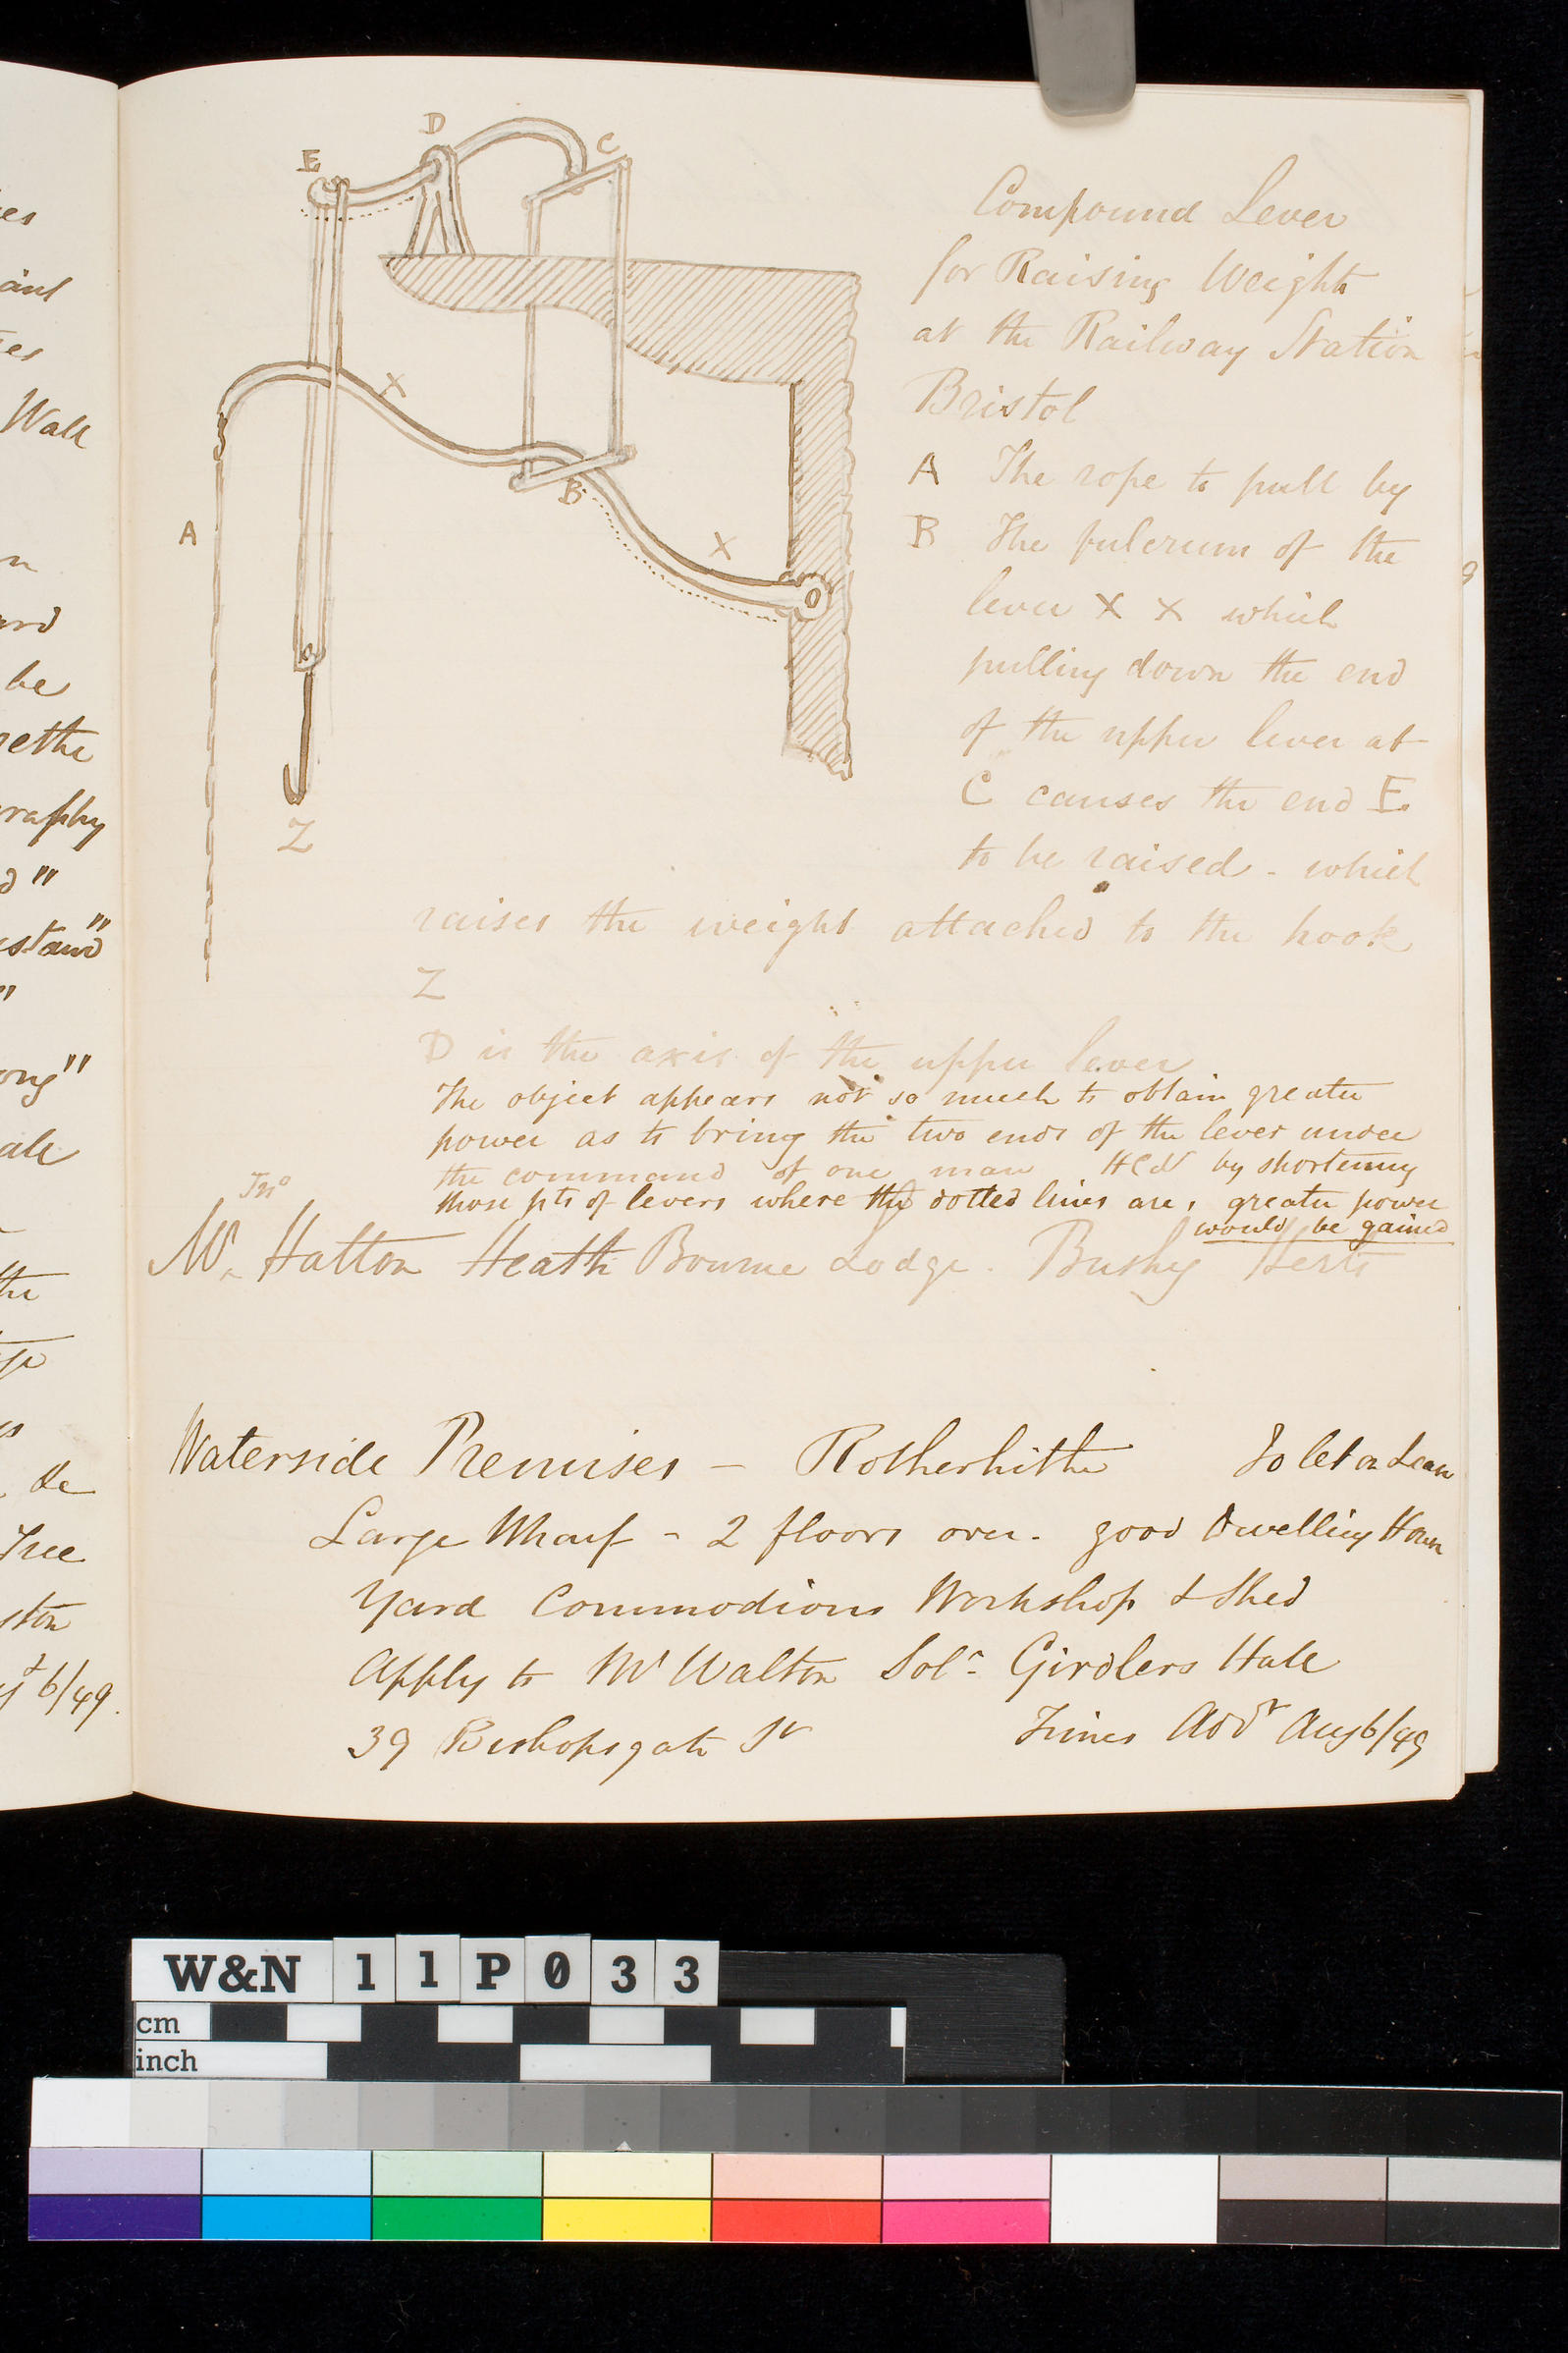 E
D
C
X
A
B
X
Z
Compound Lever
for Raising Weights
at the Railway Station
Bristol
A The rope to pull by
B The fulcrum of the
lever X X which
pulling down the end
of the upper lever at
C causes the end E
to be raised - which
raises the weight attached to the hook
Z
D is the axis of the upper lever
The object appears not so much to obtain greater
power as to bring the two ends of the lever under
the command of one man HCN by shortening
those pts of levers where the dotted lines are, greater power
would be gained
Jno
Mr Hatton Heath Bourne Lodge. Bushy Herts
Waterside Premises - Rotherhithe To let on Lease
Large Wharf - 2 floors over. good Dwelling House
Yard Commodious Workshop & Shed
Apply to Mr Walton Solr. Girdlers Hall
39 Bishopsgate St
Times Addt Aug 6/49
es
Wall
be
raphy
"
"
ong"
Tree
6/49.
W&N 11P033
cm
inch